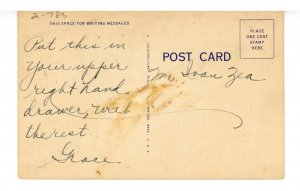 2-783
THIS SPACE FOR WRITING MESSAGES
POST CARD
PLACE
ONE CENT
STAMP
HERE
Put this in
your upper
right hand
drawer, with
the rest.
Grace
Mr. Ivan Zea